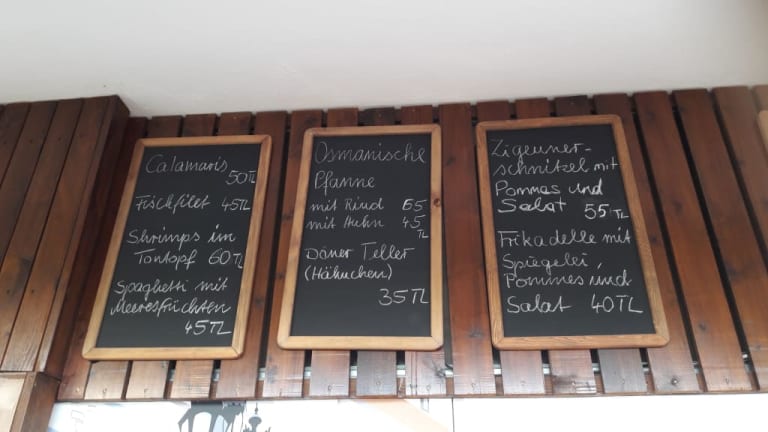 Calamaris
50TL
Fischfilet 45TL
Shrimps im
Tontopf 60TL
Spaghetti mit
Meeresfrüchten
45TL
Osmanische
Pfanne
mit Rind 65
mit Huhn 45
TL
Döner Teller
(Hähnchen)
35TL
Zigeuner-
schnitzel mit
Pommes und
Salat 55TL
Frikadelle mit
Spiegelei,
Pommes und
Salat 40TL